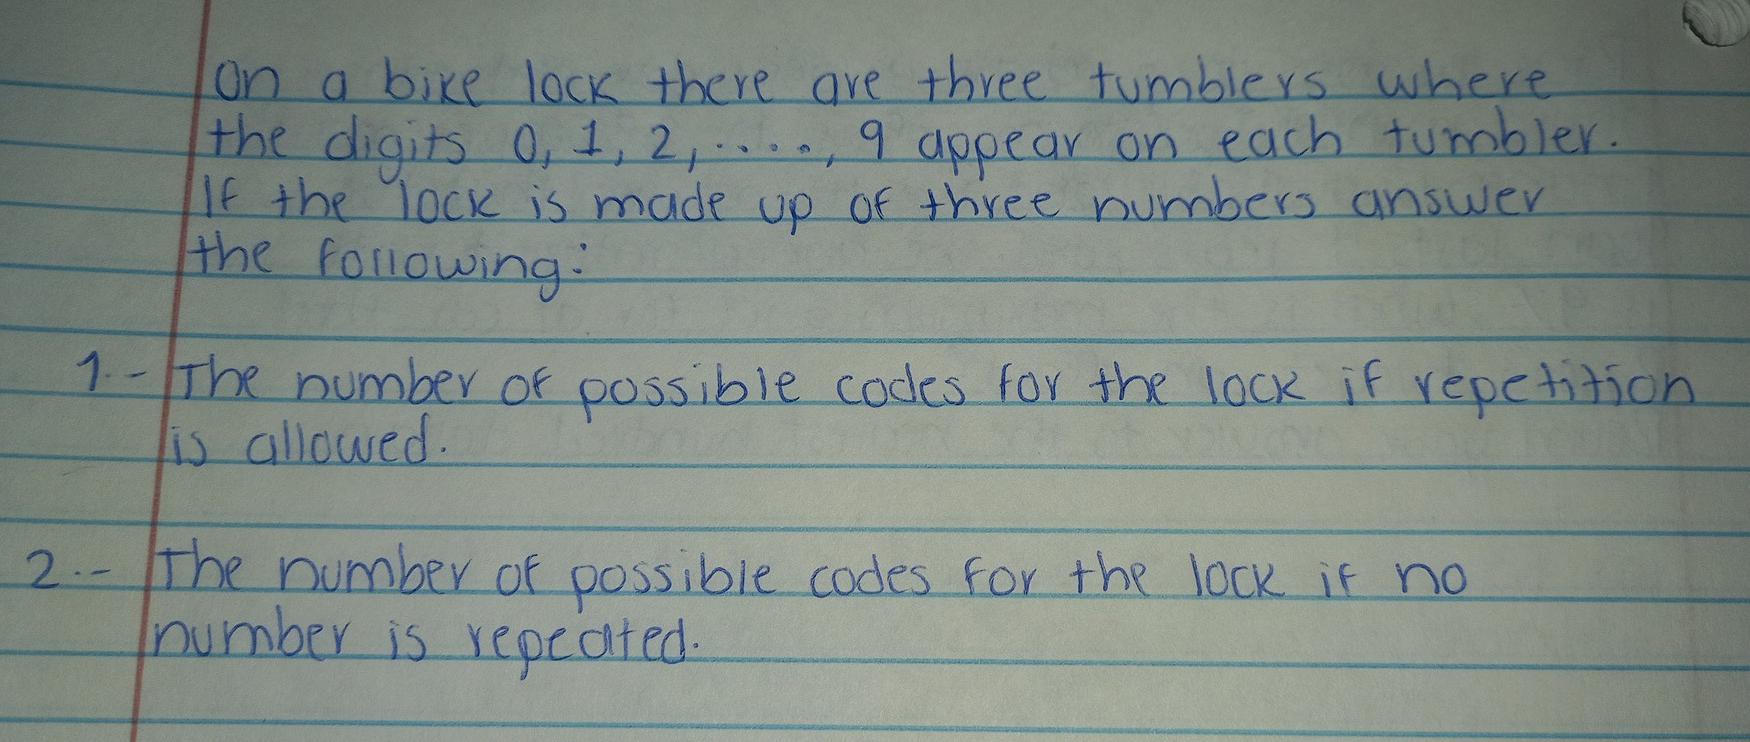 On a bike lock there are three tumblers where
the digits 0, 1, 2, ....., 9 appear on each tumbler.
If the lock is made up of three numbers answer
the following:
1.- The number of possible codes for the lock if repetition
is allowed.
2.- The number of possible codes for the lock if no
number is repeated.